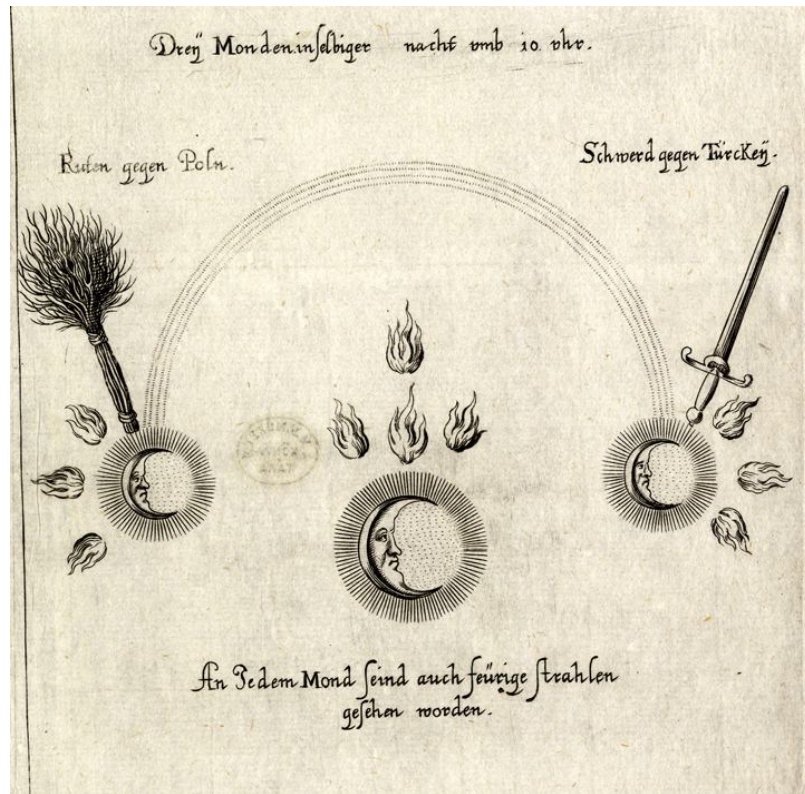 Dreÿ Monden in ſelbiger nacht vmb 10 vhr.
Ruten gegen Poln.
Schwerd gegen Türckeÿ.
An Jedem Mond ſeind auch feürige ſtrahlen
geſehen worden.